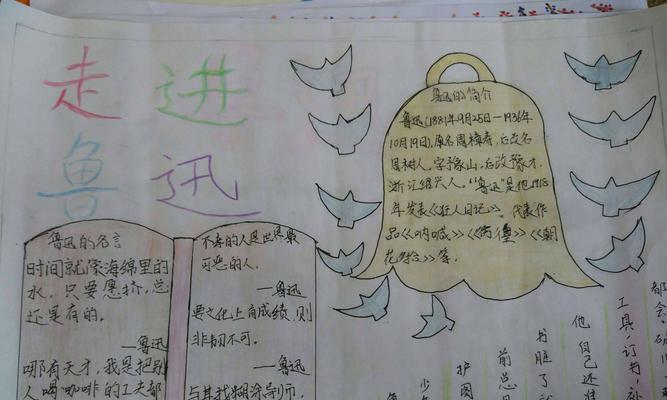 走进
鲁迅
鲁迅的简介
鲁迅(1881年9月25日—1936年
10月19日),原名周樟寿,后改名
周树人,字豫山,后改豫才,
浙江绍兴人。"鲁迅"是他1918
年发表《狂人日记》。代表作
品《呐喊》《彷徨》《朝
花夕拾》等。
鲁迅的名言
时间就像海绵里的
水,只要愿挤,总
还是有的。
—鲁迅
哪有天才,我是把别
人喝咖啡的工夫都
不孝的人是世界最
可恶的人。
—鲁迅
要文化上有成绩,则
非韧不可。
—鲁迅
与其找糊涂导师,
都会,
工具,订书,补
他自己还
书脏了就
前总
护图
少
鲁